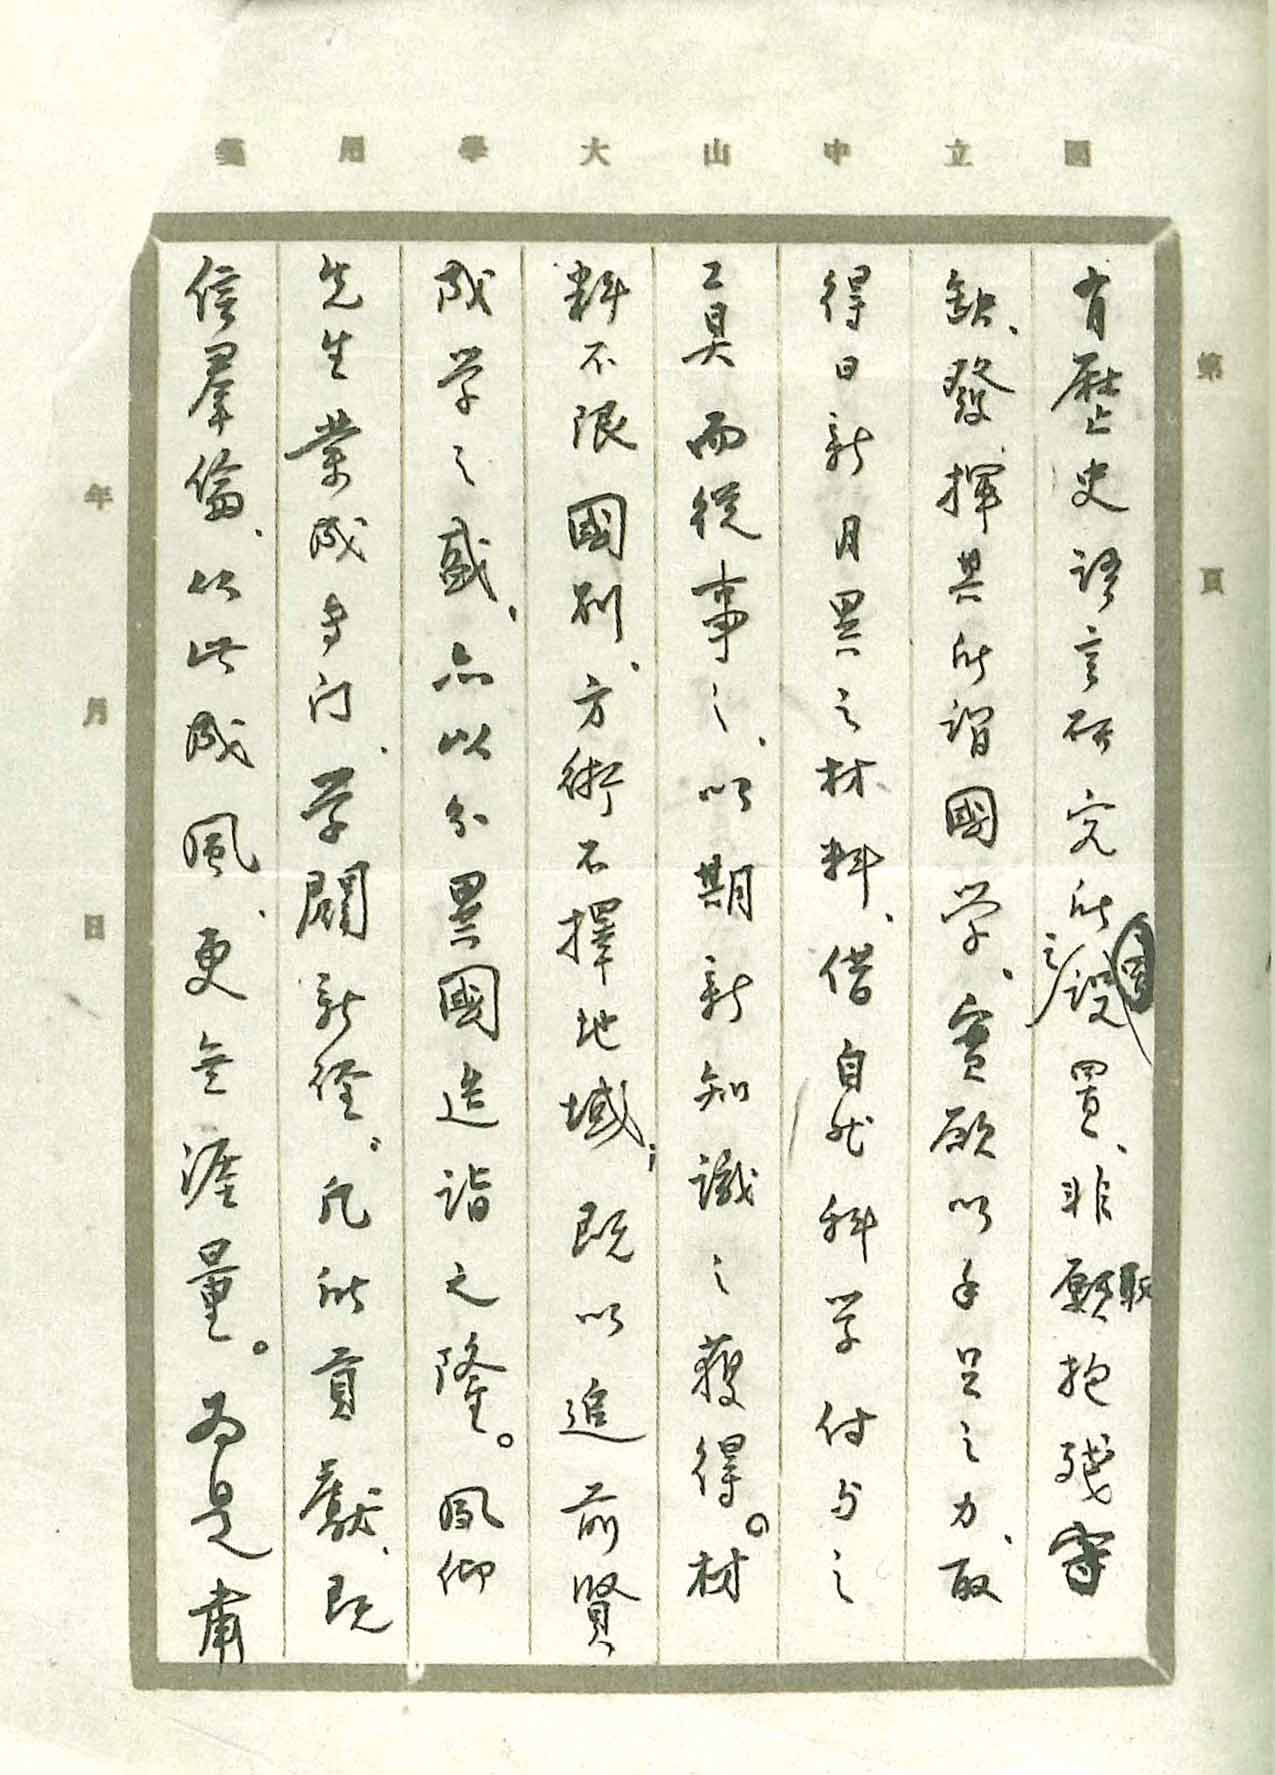 國立中山大學用箋
第 頁
有歷史語言研究所之設置、非願抱殘守
缺、發揮其所謂國学、實願以手足之力、取
得日新月異之材料、借自然科学付与之
工具而從事之、以期新知識之獲得。材
料不限國別、方術不擇地域；既以追前賢
成学之盛、亦以分異國造詣之隆。夙仰
先生業成专门、学闢新徑。凡所貢獻、既
信羣倫、以此成風、更无涯量。為是肅
年 月 日